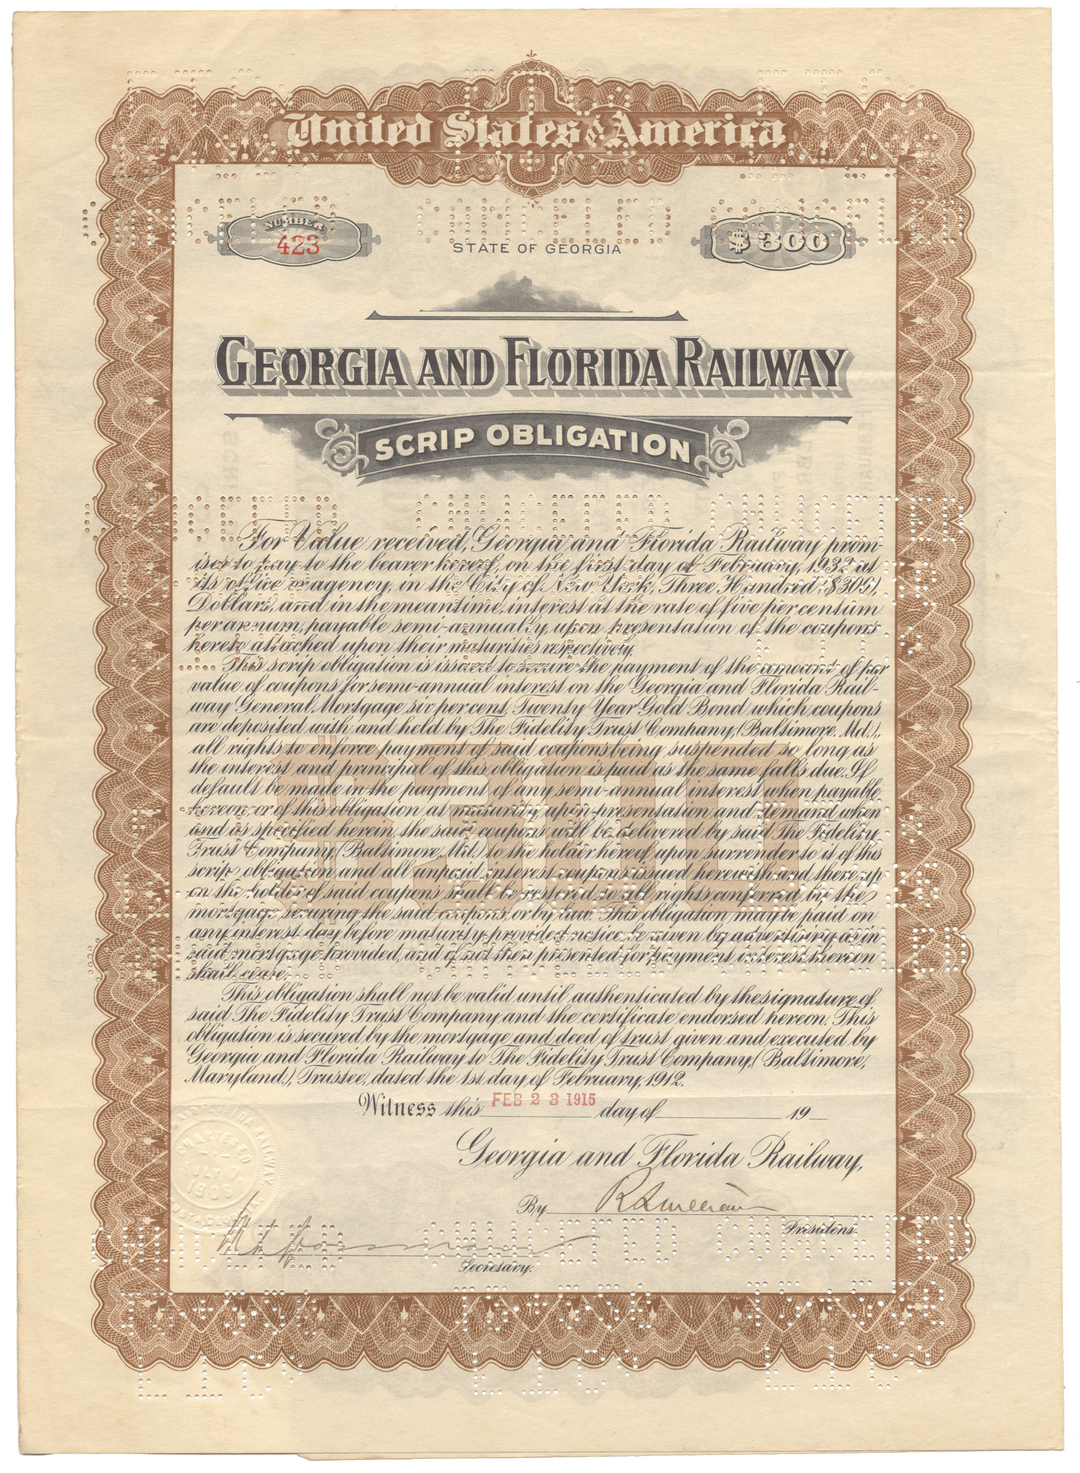 United States of America
NUMBER
423
STATE OF GEORGIA
$300
CANCELED CANCELED CANCELED
GEORGIA AND FLORIDA RAILWAY
SCRIP OBLIGATION
For Value received, Georgia and Florida Railway prom-
ises to pay to the bearer hereof, on the first day of February, 1932 at
its office or agency, in the City of New York, Three Hundred ($300)
Dollars, and in the meantime, interest at the rate of five per centum
per annum, payable semi-annually, upon presentation of the coupons
hereto attached upon their maturities respectively.
This scrip obligation is issued to secure the payment of the amount of par
value of coupons for semi-annual interest on the Georgia and Florida Rail-
way General Mortgage, six per cent, Twenty Year Gold Bond which coupons
are deposited with and held by The Fidelity Trust Company, (Baltimore, Md.),
all rights to enforce payment of said coupons being suspended so long as
the interest and principal of this obligation is paid as the same falls due. If
default be made in the payment of any semi-annual interest when payable
hereon, or of this obligation at maturity upon presentation and demand when
and as specified herein, the said coupons will be delivered by said The Fidelity
Trust Company, (Baltimore, Md.) to the holder hereof upon surrender to it of this
scrip obligation and all unpaid interest coupons issued herewith and there up-
on the holder of said coupons shall be restored to all rights conferred by the
mortgage securing the said coupons, or by law. This obligation may be paid on
any interest day before maturity, provided notice be given by advertising as in
said mortgage provided, and if not then presented for payment interest thereon
shall cease.
This obligation shall not be valid until authenticated by the signature of
said The Fidelity Trust Company and the certificate endorsed hereon. This
obligation is secured by the mortgage and deed of trust given and executed by
Georgia and Florida Railway to The Fidelity Trust Company, (Baltimore,
Maryland), Trustee, dated the 1st day of February, 1912.
Witness this FEB 23 1915 day of 19
Georgia and Florida Railway,
By
President.
Secretary.
1906